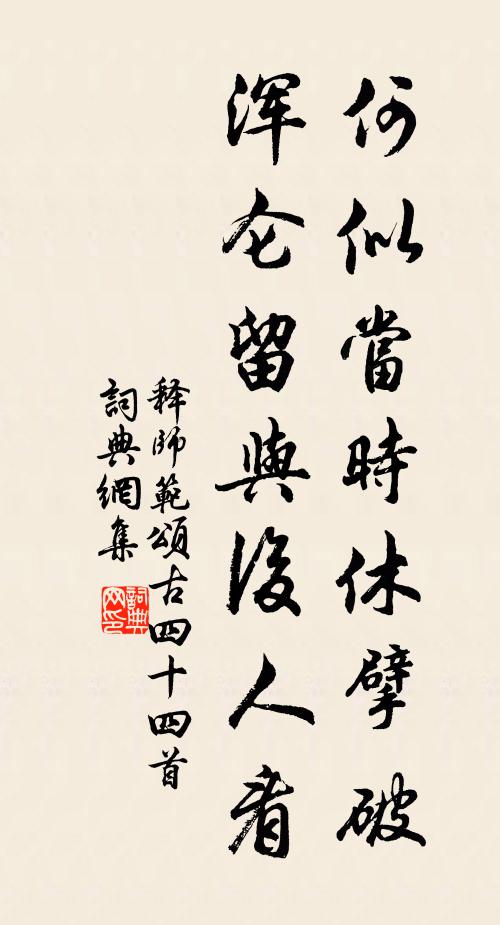 何似當時休擘破
浑仑留與後人看
释師範頌古四十四首
詞典網集
詞典网印